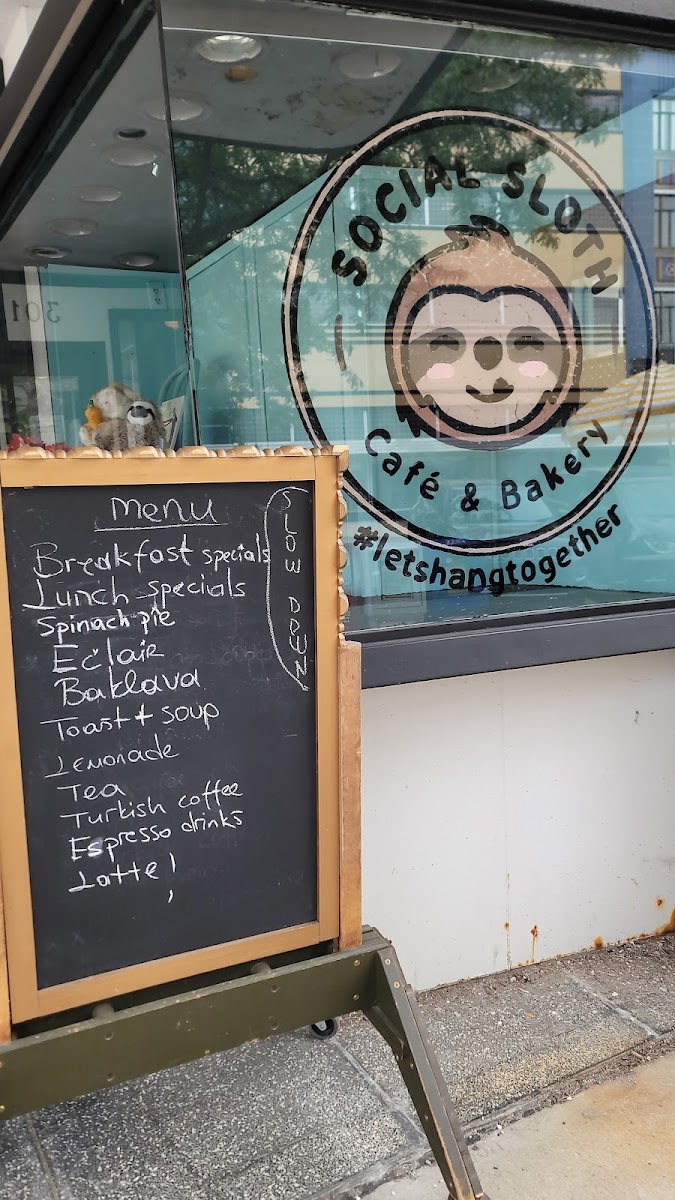 SOCIAL SLOTH
Café & Bakery
#letshangtogether
301
menu
SLOW DOWN
Breakfast specials
Lunch specials
Spinach pie
Eclair
Baklava
Toast + soup
Lemonade
Tea
Turkish coffee
Espresso drinks
Latte!